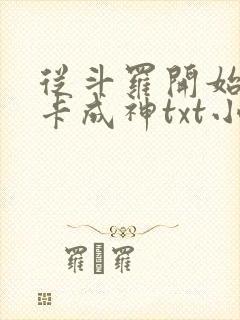 從斗羅開始
卡成神txt小
羅 羅